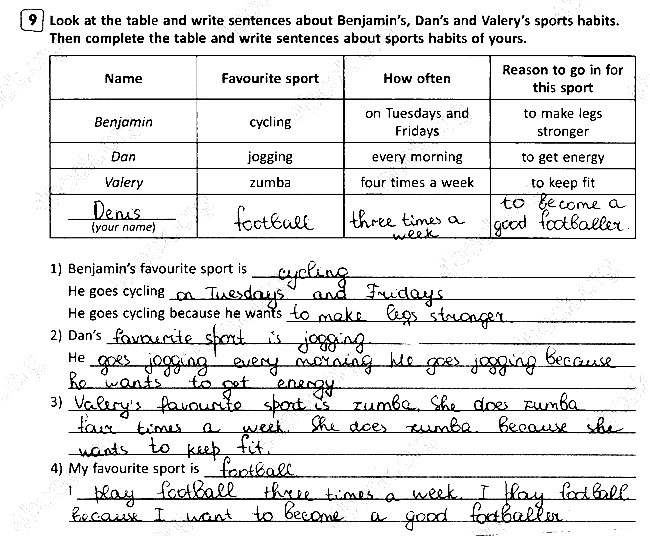 9 Look at the table and write sentences about Benjamin's, Dan's and Valery's sports habits.
Then complete the table and write sentences about sports habits of yours.
Name Favourite sport How often Reason to go in for this sport
Benjamin cycling on Tuesdays and Fridays to make legs stronger
Dan jogging every morning to get energy
Valery zumba four times a week to keep fit
Denis (your name) football three times a week to become a good footballer.
1) Benjamin's favourite sport is cycling
He goes cycling on Tuesdays and Fridays
He goes cycling because he wants to make legs stronger
2) Dan's favourite sport is jogging.
He goes jogging every morning He goes jogging because
he wants to get energy
3) Valery's favourite sport is zumba. She does zumba
four times a week. She does zumba because she
wants to keep fit.
4) My favourite sport is football
I play football three times a week. I play football
because I want to become a good footballer